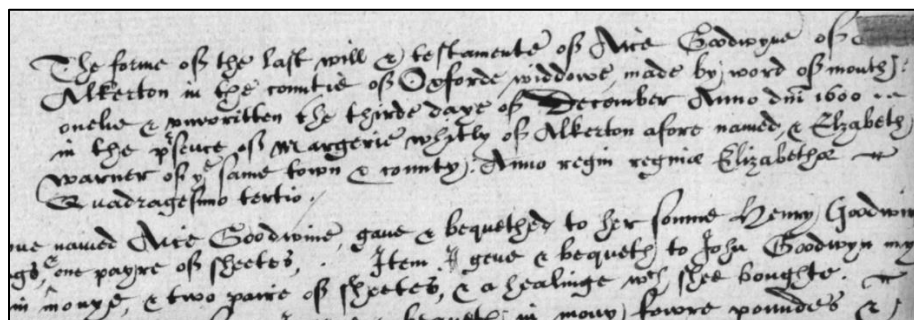 The forme of the last will & testamente of Alce Goodwyne of
Alkerton in the countie of Oxforde widdowe, made by word of mouth
onelie & unwritten the thirde daye of December Anno dni 1600
in the psence of Margerie Whitly of Alkerton afore named & Elizabeth
warner of ye same town & county. Anno regni reginæ Elizabethæ
Quadragesimo tertio.
named Alce Goodwine, gave & bequethed to her sonne Henry Goodwin
one payre of sheetes, Item I geve & bequeth to John Goodwyn my
in monye, & two paire of sheetes, & a healinge wch shee boughte.
bequeth in mony fowre poundes &